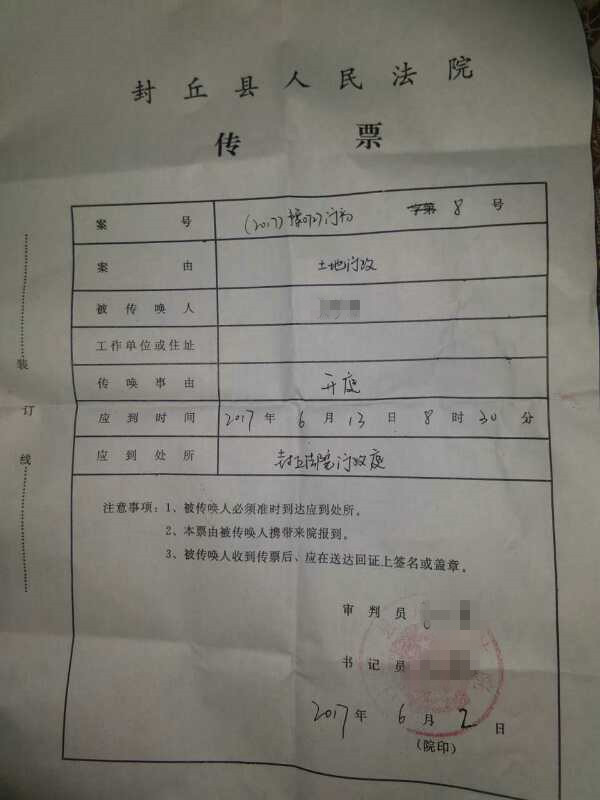 封丘县人民法院
传票
案号 (2017)豫0727行初 字第 8 号
案由 土地行政
被传唤人
工作单位或住址
传唤事由 开庭
应到时间 2017年 6 月 13 日 8 时 30 分
应到处所 封丘法院行政庭
注意事项：1、被传唤人必须准时到达应到处所。
2、本票由被传唤人携带来院报到。
3、被传唤人收到传票后、应在送达回证上签名或盖章。
审判员
书记员
2017年 6 月 2 日
(院印)
装订线